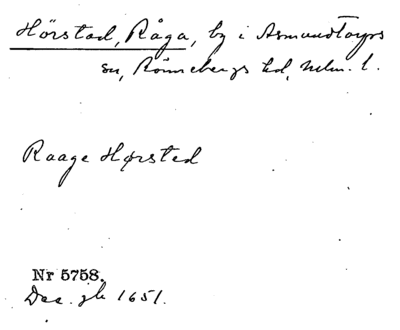 Hörstad, Råga, by i Asmundtorps
sn, Rönnebergs hd, Mlm. l.
Raage Hørsted
Nr 5758.
Dec. jb 1651.